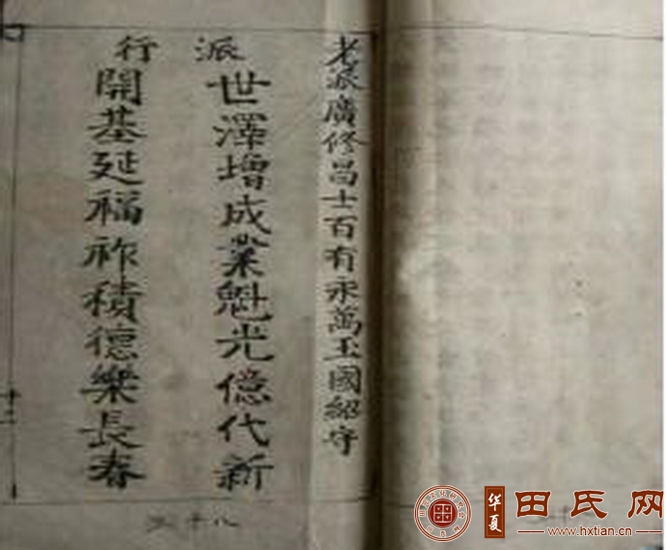 老派廣修昌士百有永萬玉國紹守
派行
世澤增成業魁光億代新
開基延福祚積德樂長春
十二
华夏
田氏网
www.hxtian.cn